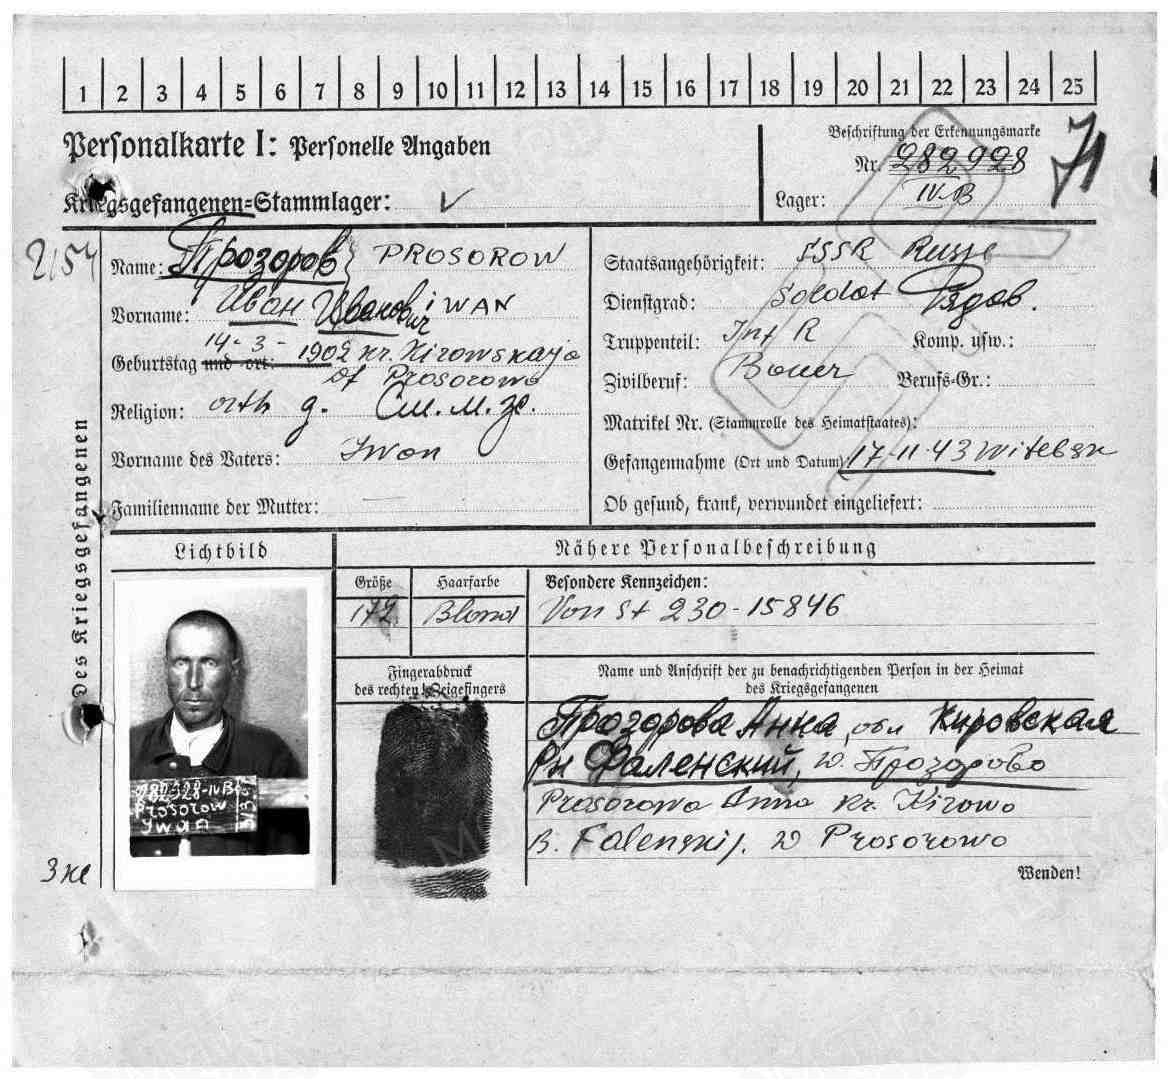 1 2 3 4 5 6 7 8 9 10 11 12 13 14 15 16 17 18 19 20 21 22 23 24 25
Personalkarte I: Personelle Angaben
Kriegsgefangenen-Stammlager:
Beschriftung der Erkennungsmarke
Nr. 282928
Lager: IV-B
71
2154
Name: Прозоров PROSOROW
Vorname: Иван Иванович IWAN
Geburtstag und ort: 14-3-1902 Kr. Kirowskaja
Df Prosorowo
Religion: orth g. См. м. ж.
Vorname des Vaters: Iwan
Familienname der Mutter:
Staatsangehörigkeit: SSSR Russe
Dienstgrad: Soldat Рядов.
Truppenteil: Inf R Komp. usw.:
Zivilberuf: Bauer Berufs-Gr.:
Matrikel Nr. (Stammrolle des Heimatstaates):
Gefangennahme (Ort und Datum) 17-11-43 Witebsk
Ob gesund, krank, verwundet eingeliefert:
Des Kriegsgefangenen
Lichtbild
Nähere Personalbeschreibung
Größe Haarfarbe Besondere Kennzeichen:
172 Blond Von St 230-15846
Fingerabdruck
des rechten Zeigefingers
Name und Anschrift der zu benachrichtigenden Person in der Heimat
des Kriegsgefangenen
Прозорова Анна, обл Кировская
Рн Фаленский, д. Прозорово
Prosorowa Anna Kr. Kirowo
B. Falenskij. D Prosorowo
282928-IVB
Prosorow
Iwan
Wenden!